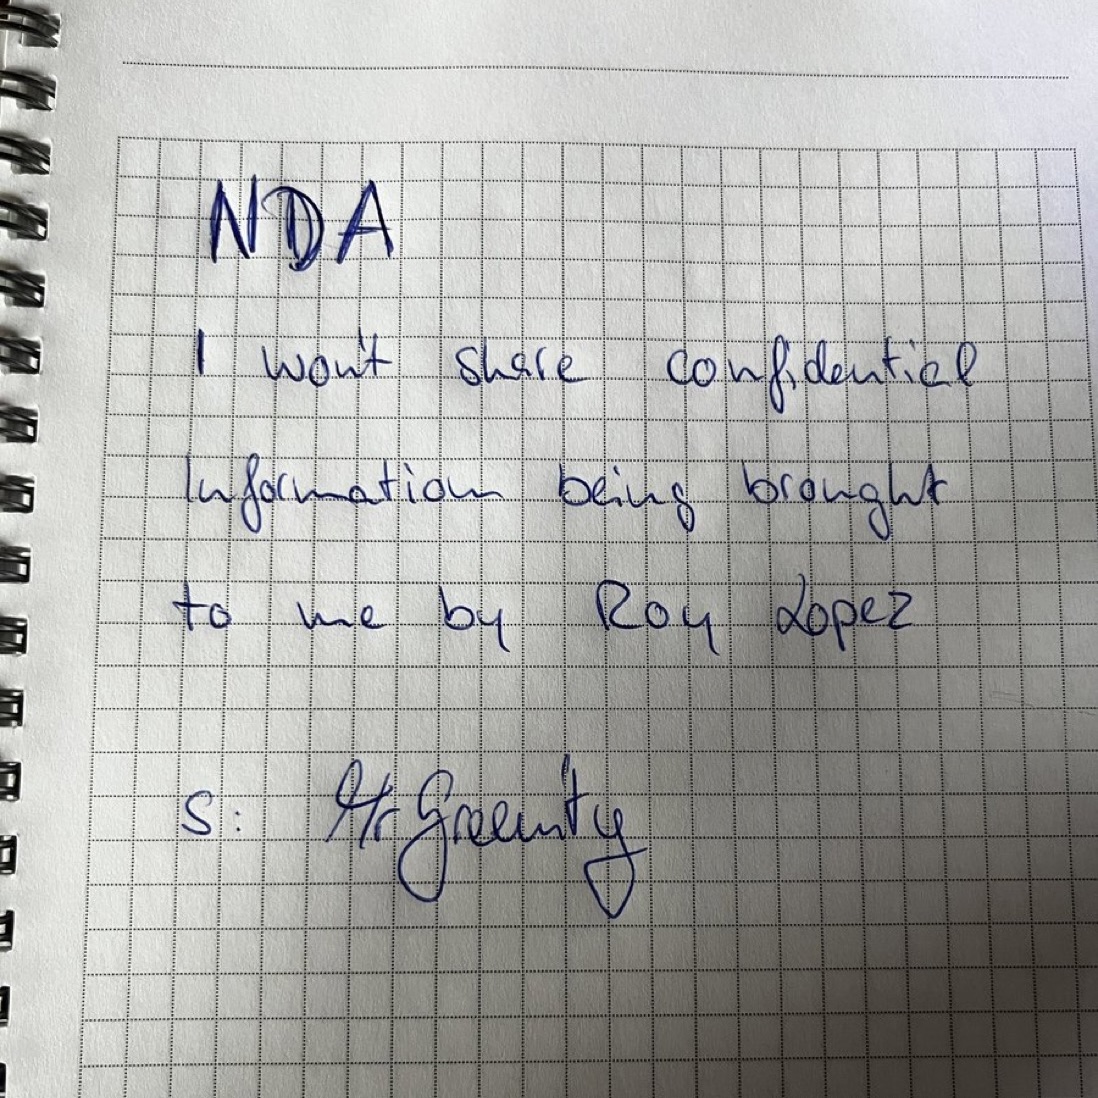 NDA
I won't share confidential
Information being brought
to me by Roy Lopez
S: Mr Greenity